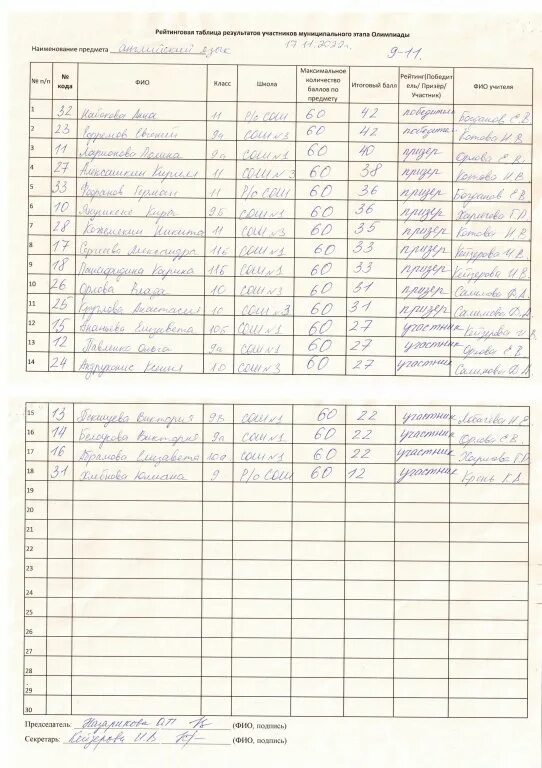 Рейтинговая таблица результатов участников муниципального этапа Олимпиады
Наименование предмета английский язык 17.11.2022г. 9-11.
№ п/п № кода ФИО Класс Школа Максимальное количество баллов по предмету Итоговый балл Рейтинг(Победитель/ Призёр/ Участник) ФИО учителя
1 32 Набокова Яна 11 Р/о СОШ 60 42 победитель Богданов Е.В.
2 23 Евгений 9а СОШ №3 60 42 победитель Котова И.В.
3 11 Ларионова 9а СОШ №1 60 40 призер Орлова Е.В.
4 27 Алексашкин Кирилл 11 СОШ №3 60 38 призер Котова И.В.
5 33 Фофанов Герман 11 Р/о СОШ 60 36 призер Богданов Е.В.
6 10 Кира 9Б СОШ №1 60 36 призер
7 28 Никита 11 СОШ №3 60 35 призер Котова И.В.
8 17 Сергеева Александра 11Б СОШ №1 60 33 призер Кейзерова И.В.
9 18 Карина 11Б СОШ №1 60 33 призер Кейзерова И.В.
10 26 Орлова Влада 10 СОШ №3 60 31 призер Салимова Ф.А.
11 25 Круглова Анастасия 10 СОШ №3 60 31 призер Салимова Ф.А.
12 15 Ананьева Елизавета 10Б СОШ №1 60 27 участник Кейзерова И.В.
13 12 Павленко Ольга 9а СОШ №1 60 27 участник Орлова Е.В.
14 24 Ксения 10 СОШ №3 60 27 участник Салимова Ф.А.
15 13 Виктория 9В СОШ №1 60 22 участник
16 14 Белоусова Виктория 9а СОШ №1 60 22 участник Орлова Е.В.
17 16 Абрамова Елизавета 10а СОШ №1 60 22 участник
18 31 Юлиана 9 Р/о СОШ 60 12 участник
19
20
21
22
23
24
25
26
27
28
29
30
Председатель: Назарикова О.П. (ФИО, подпись)
Секретарь: Кейзерова И.В. (ФИО, подпись)